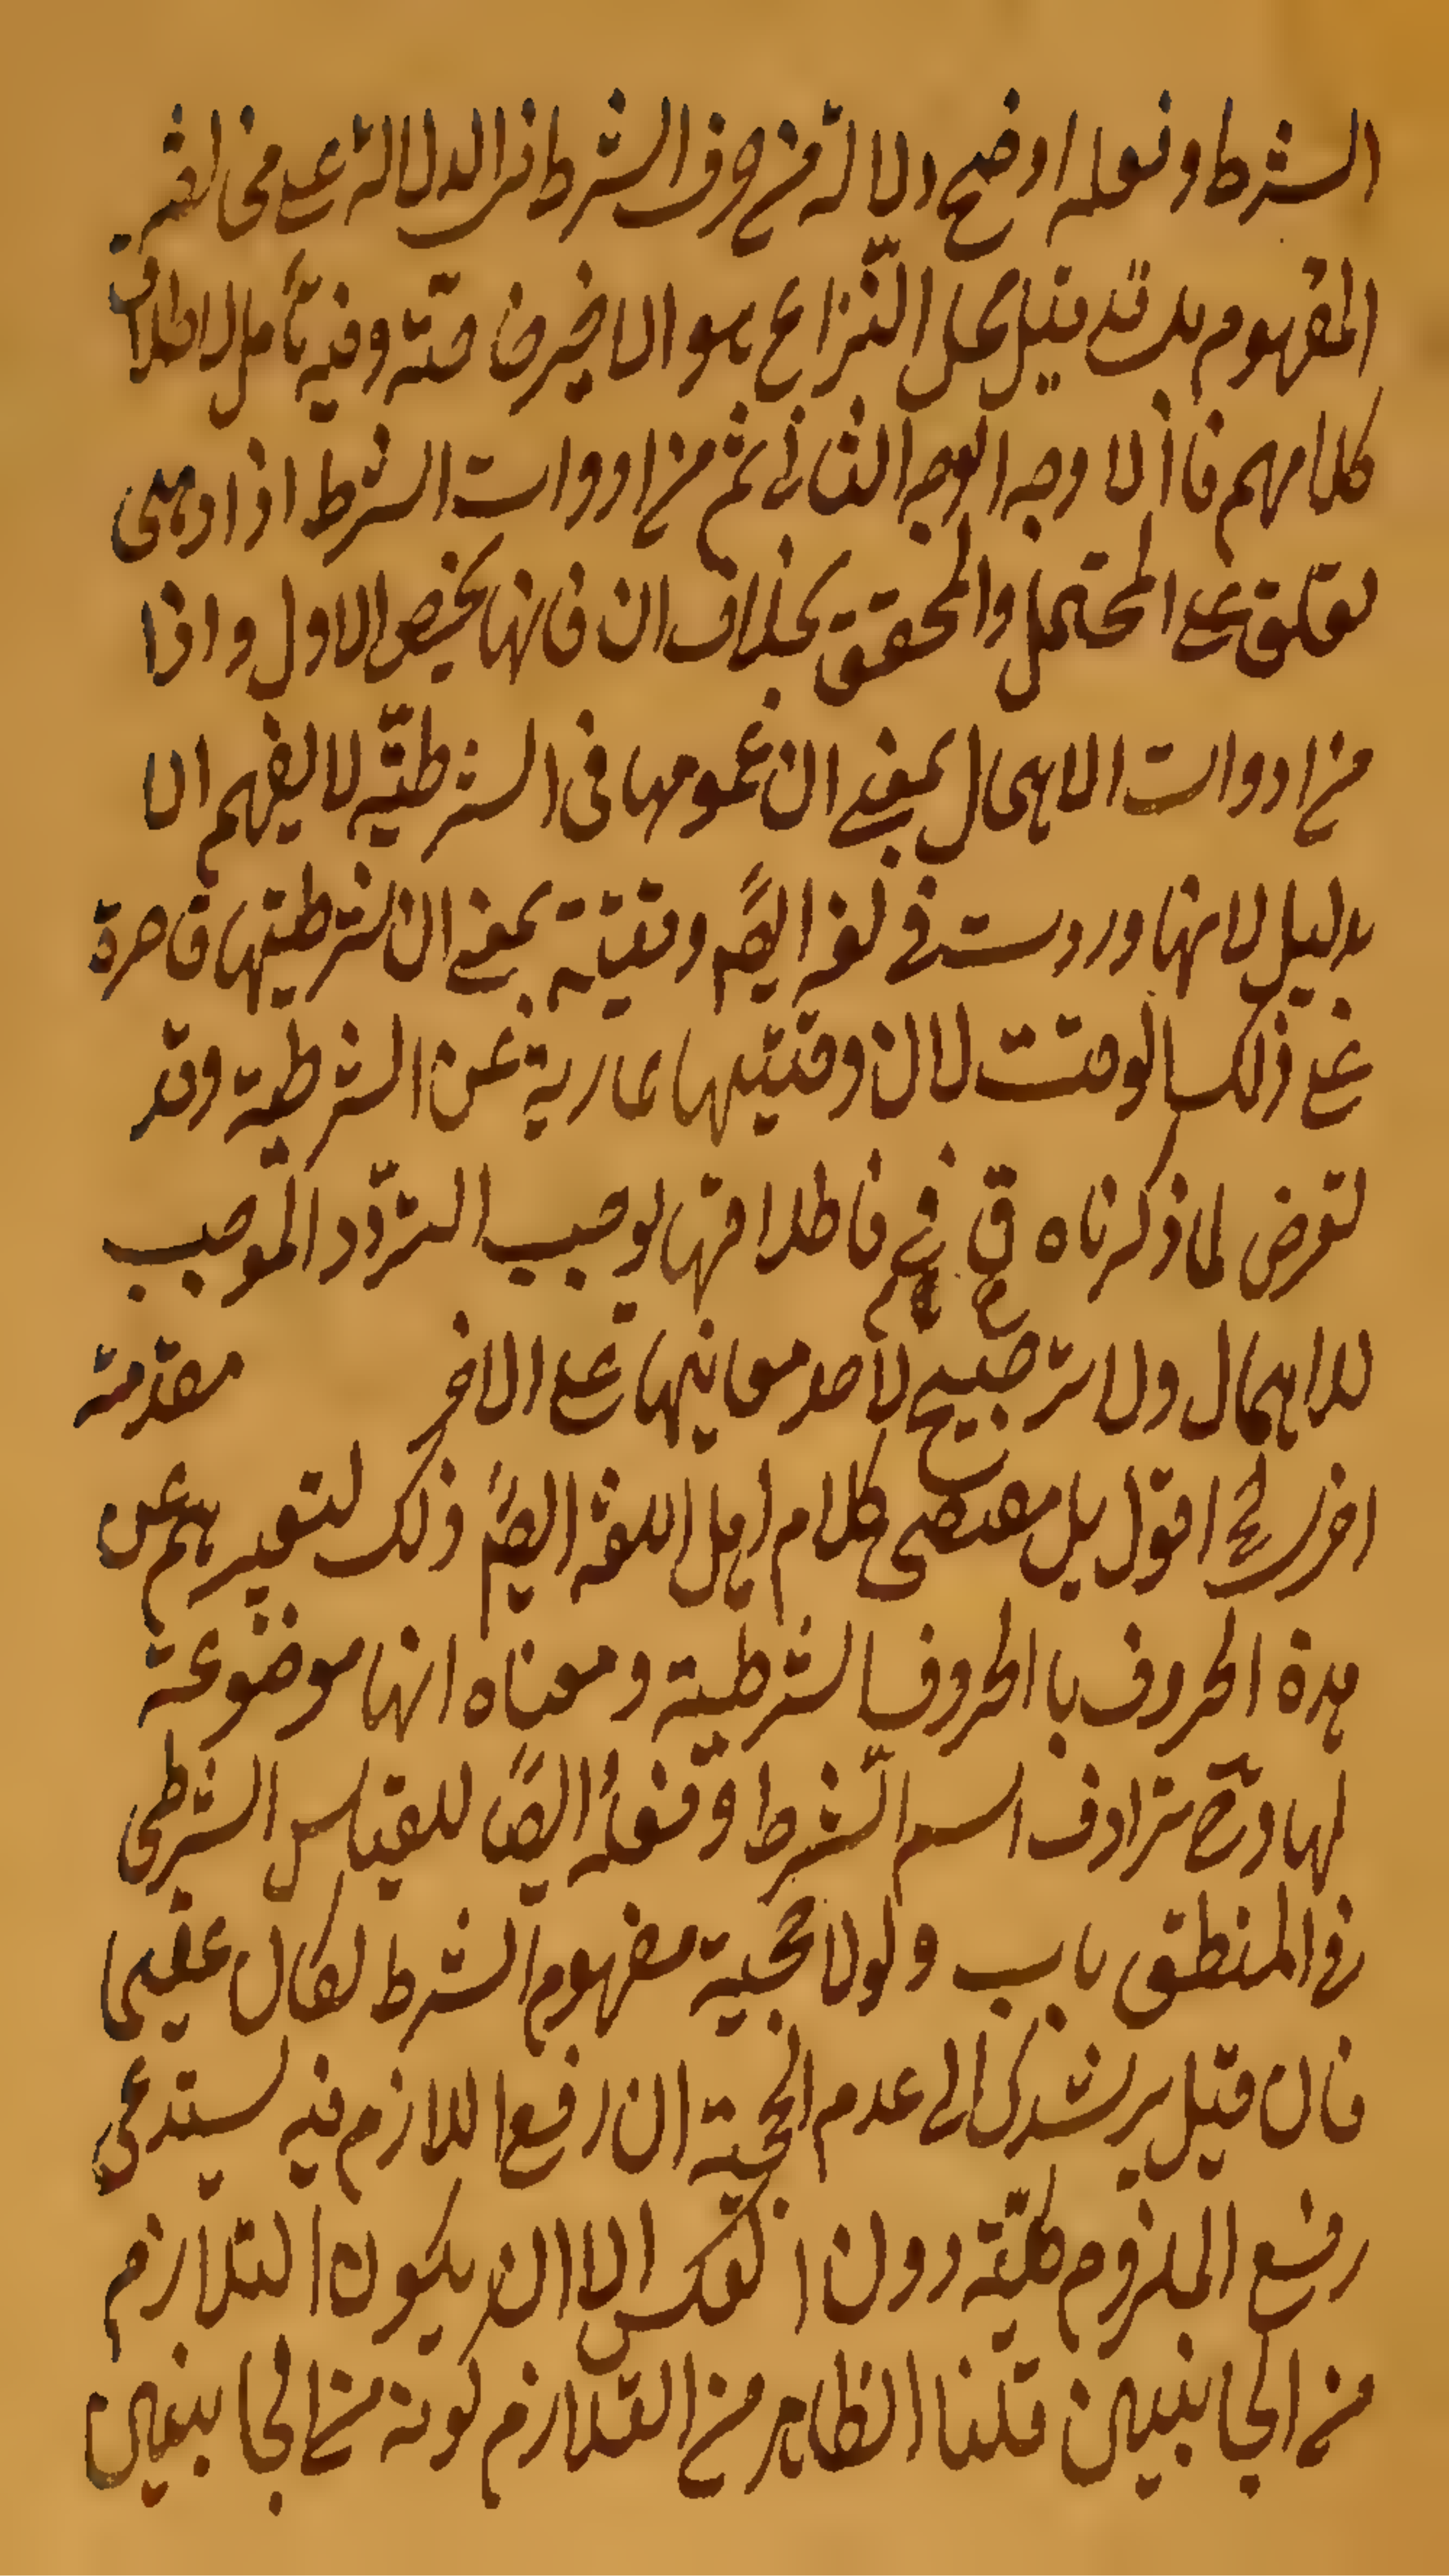 الشرط وفعله اوضح دلالة من حروف الشرط في الدلالة على مخالفة
المفهوم بل قد قيل محل النزاع هو الاخير خاصته وفيه تأمل لاطلاق
كلامهم فاذا لا وجه الوجه الثاني ثم من ادوات الشرط اذا وهى
تعلق على المحتمل والمحقق بخلاف ان فانها يخص الاول واذا
من ادوات الاهمال بمعنى ان عمومها فى الشرطيّة لا يفهم الا
بدليل لانها وردت في لغة ايضً وقتيّة بمعنى ان شرطيتها قاصرة
على ذلك الوقت لان وقتيتها عارية عن الشرطية وقد
تعرض لما ذكرناه ق في فاطلاقها يوجب التردّد الموجب
للاهمال ولا ترجيح لاحد معانيها على الاخر مقدّمة
اخرى اقول بل مقتضى كلام اهل اللغة ايضً ذلك لتعبيرهم عن
هدة الحروف با الحروف الشرطية ومعناه انها موضوعة
لها وح ترادف اسم الشرط وفعلهُ ايضًا للقياس الشرطى
في المنطق باب ولولا حجية مفهوم الشرط لكان عقيما
فان قيل يرشدك الى عدم الحجية ان رفع اللازم فيه يستدعى
رفع الملزوم كليّة دون العكس الا ان يكون التلازم
من الجانبين قلنا الظاهر من التلازم كونه من الجانبين